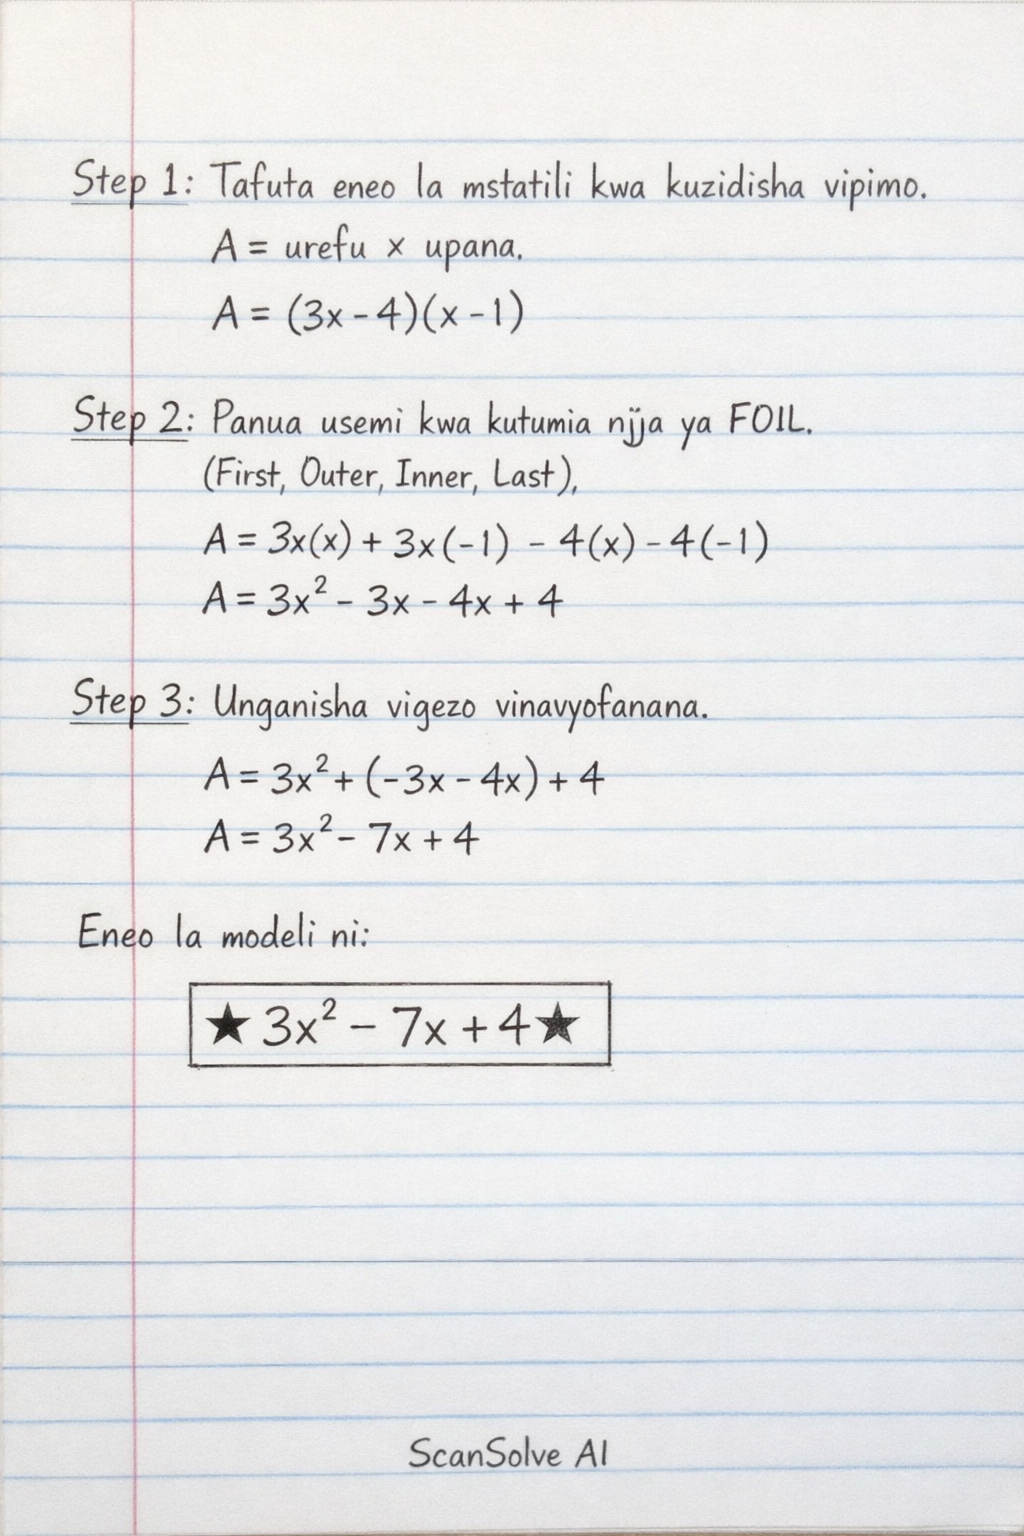 Step 1: Tafuta eneo la mstatili kwa kuzidisha vipimo.
A = urefu × upana.
A = (3x - 4)(x - 1)
Step 2: Panua usemi kwa kutumia njja ya FOIL.
(First, Outer, Inner, Last),
A = 3x(x) + 3x(-1) - 4(x) - 4(-1)
A = 3x² - 3x - 4x + 4
Step 3: Unganisha vigezo vinavyofanana.
A = 3x² + (-3x - 4x) + 4
A = 3x² - 7x + 4
Eneo la modeli ni:
★ 3x² - 7x + 4 ★
ScanSolve AI